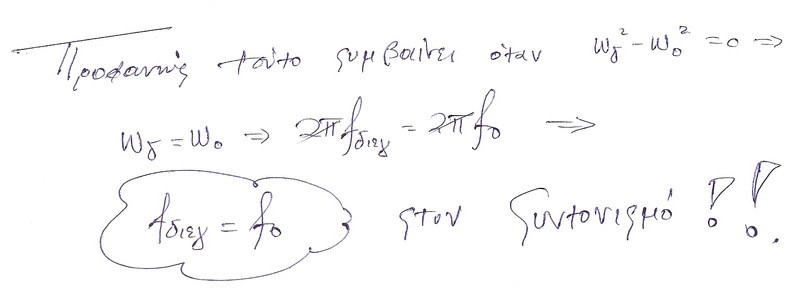 Προφανώς τούτο συμβαίνει όταν ω_δ² - ω_0² = 0 ⇒
ω_δ = ω_0 ⇒ 2πf_διεγ = 2πf_0 ⇒
f_διεγ = f_0 στον συντονισμό!!